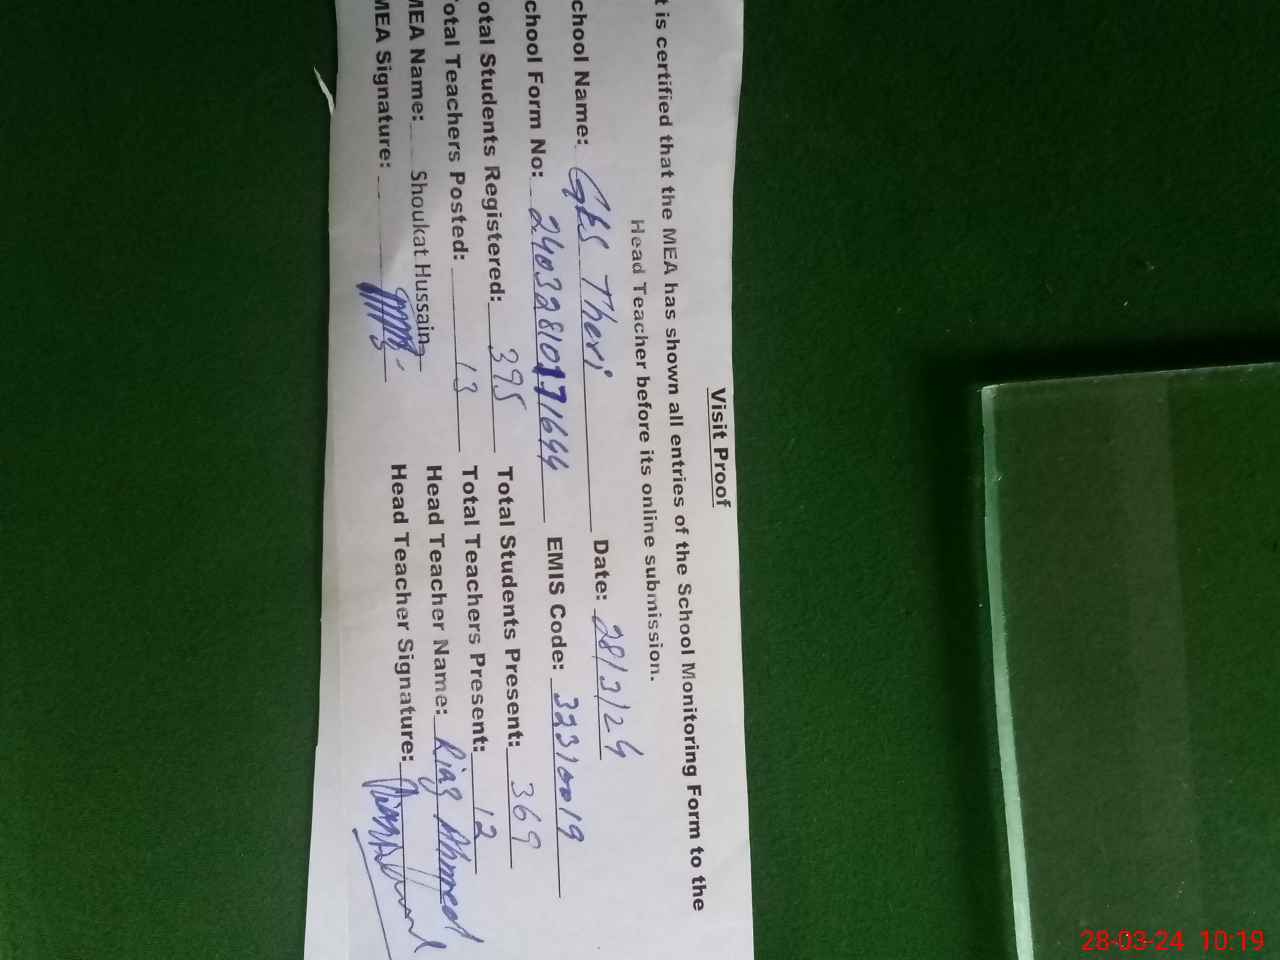 Visit Proof
t is certified that the MEA has shown all entries of the School Monitoring Form to the
Head Teacher before its online submission.
chool Name: GES Theri Date: 28/3/24
chool Form No: 24032810171644 EMIS Code: 32310019
otal Students Registered: 395 Total Students Present: 369
otal Teachers Posted: 13 Total Teachers Present: 12
MEA Name: Shoukat Hussain Head Teacher Name: Riaz Ahmed
MEA Signature: Head Teacher Signature:
28-03-24 10:19